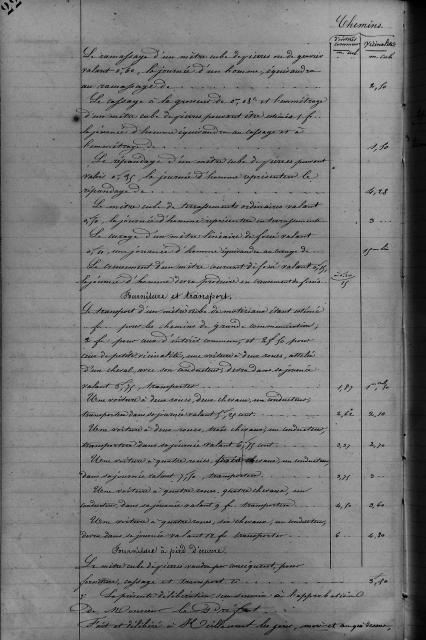 Chemins
vicinaux
m. cub
Le ramassage d'un mètre cube de pierres ou de gravier
valant 0,60, la journée d'un homme, équivaudra
au ramassage de 2,50
Le cassage à la grosseur de et l'emmétrage
d'un mètre cube de pierre pouvant être estimés 1 f.
la journée d'homme équivaudra au cassage et à
l'emmétrage de 1,50
Le répandage d'un mètre cube de pierres pouvant
valoir 0,35 la journée d'homme représentera le
répandage de 4,28
Le mètre cube de terrassements ordinaires valant
0,50, la journée d'homme représentera en terrassements 3
Le curage d'un mètre linéaire de fossé valant
0,10, une journée d'homme équivaudra au curage de
Le creusement d'un mètre courant de fossé valant
la journée d'homme devra produire en creusement de fossés 15
Fourniture et transport.
Le transport d'un mètre cube de matériaux étant estimé
f. pour les chemins de grande communication,
2 f. pour ceux d'intérêt commun, et 2 f. 50 pour
ceux de petite vicinalité, une voiture à deux roues, attelée
d'un cheval avec son conducteur, devra dans sa journée
valant 3,75, transporter 1,87
Une voiture à deux roues, deux chevaux, un conducteur,
transportera dans sa journée valant 5,25 cent. 2,62 2,10
Une voiture à deux roues, trois chevaux, un conducteur,
transportera dans sa journée valant 6,75 cent. 3,37 2,70
Une voiture à quatre roues, chevaux, un conducteur,
dans sa journée valant 7,50, transportera 3,75 3
Une voiture à quatre roues, quatre chevaux, un
conducteur, dans sa journée valant 9 f. transportera 4,50 3,60
Une voiture à quatre roues, six chevaux, un conducteur,
devra dans sa journée valant 12 f. transporter 6 4,80
Fourniture à pied d'œuvre.
Le mètre cube de pierres vaudra par conséquent, pour
fourniture, cassage et transport
La présente délibération sera soumise à l'approbation
de Monsieur le Préfet
Fait et délibéré à les jour, mois et an que dessus,